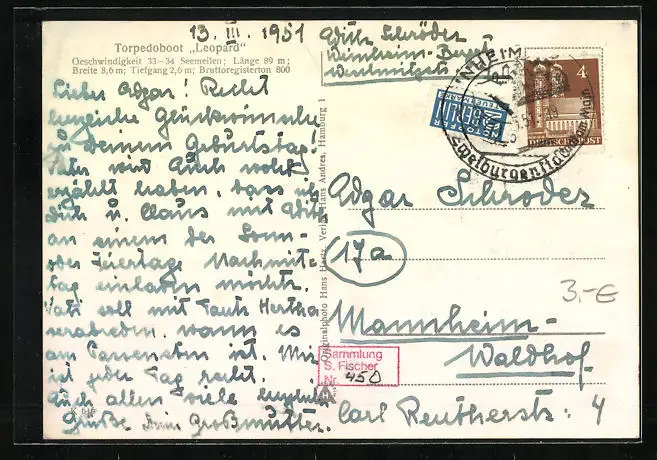 13. III. 1951
Torpedoboot „Leopard"
Geschwindigkeit 33-34 Seemeilen; Länge 89 m;
Breite 8,6 m; Tiefgang 2,6 m; Bruttoregistertonn 800
Lieber Edgar! Recht
herzliche Glückwünsche
zu Deinem Geburtstag.
Vater wird Euch wohl
erzählt haben, dass ich
Dich u. Claus mit
an einem der Sonn-
oder Feiertage Nachmit-
tag einladen möchte.
Vati soll mit Tante Hertha
verabreden, wann es
am Passensten ist. Mir
ist jeder Tag recht.
Euch allen viele herzliche
Grüße Deine Großmutter.
Schröder
Weinheim-Bergstr.
Originalphoto Hans Hartz, Verlag Hans Andres, Hamburg 1
NOTOPFER
2 BERLIN
STEUERMARKE
WEINHEIM
Zweiburgenstadt
4
DEUTSCHE POST
Edgar Schröder
17a
Mannheim-
Waldhof
Carl Reutherstr. 4
3.-€
Sammlung
S. Fischer
Nr. 450